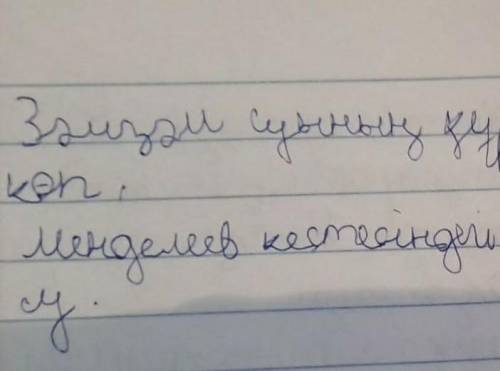 Зәмзәм суының құ
көп.
Менделеев кестесіндегі
су.